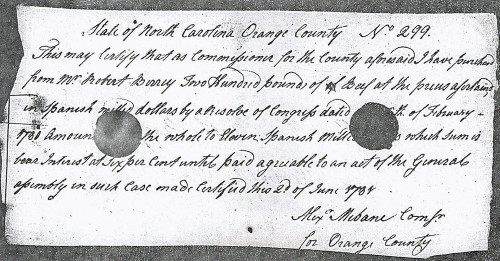 State of North Carolina Orange County No 299.
This may Certify that as Commissioner for the County aforesaid I have purchased
from Mr Robert Berrey Two Hundred pounds of Beef at the prices ascertained
in Spanish milled dollars by a Resolve of Congress dated th of February
1780 Amount the whole to Eleven Spanish Milled which sum is
bear Interest at Six per Cent until paid agreable to an act of the General
assembly in such Case made Certified this 2d of June 1784
Alexr Mebane Comsr
for Orange County